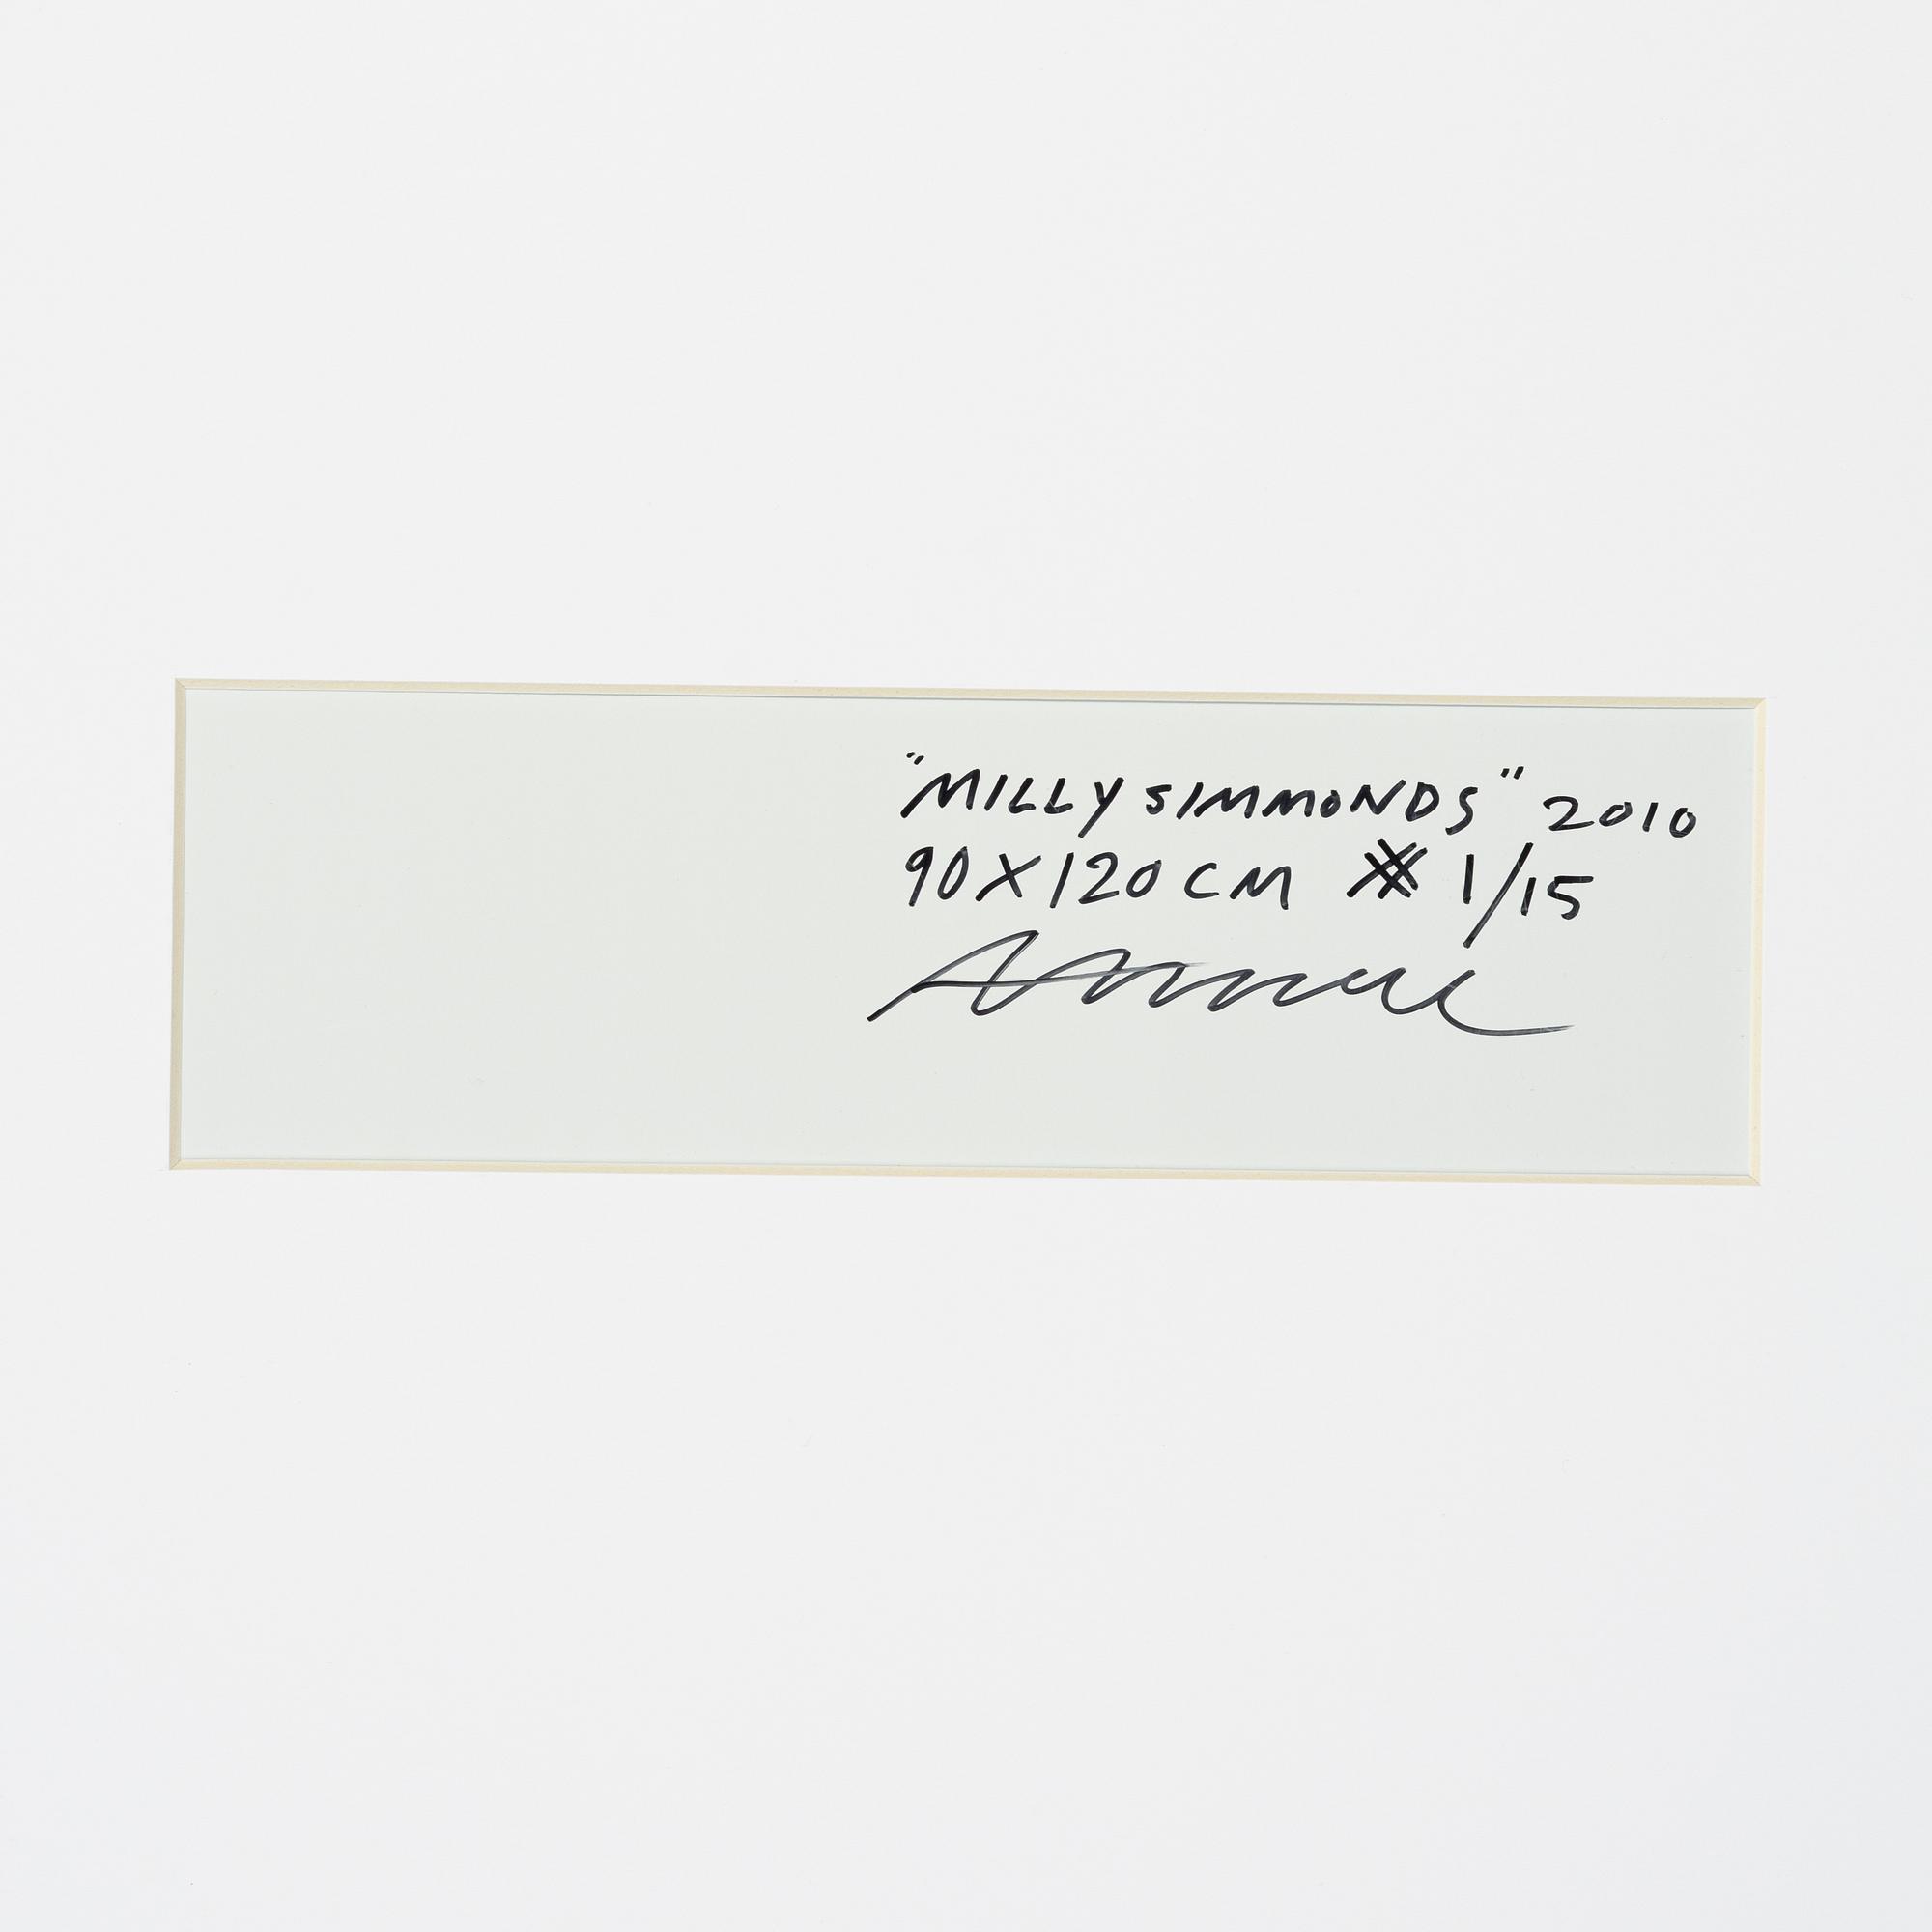 "MILLY SIMMONDS" 2010
90X120 CM # 1/15